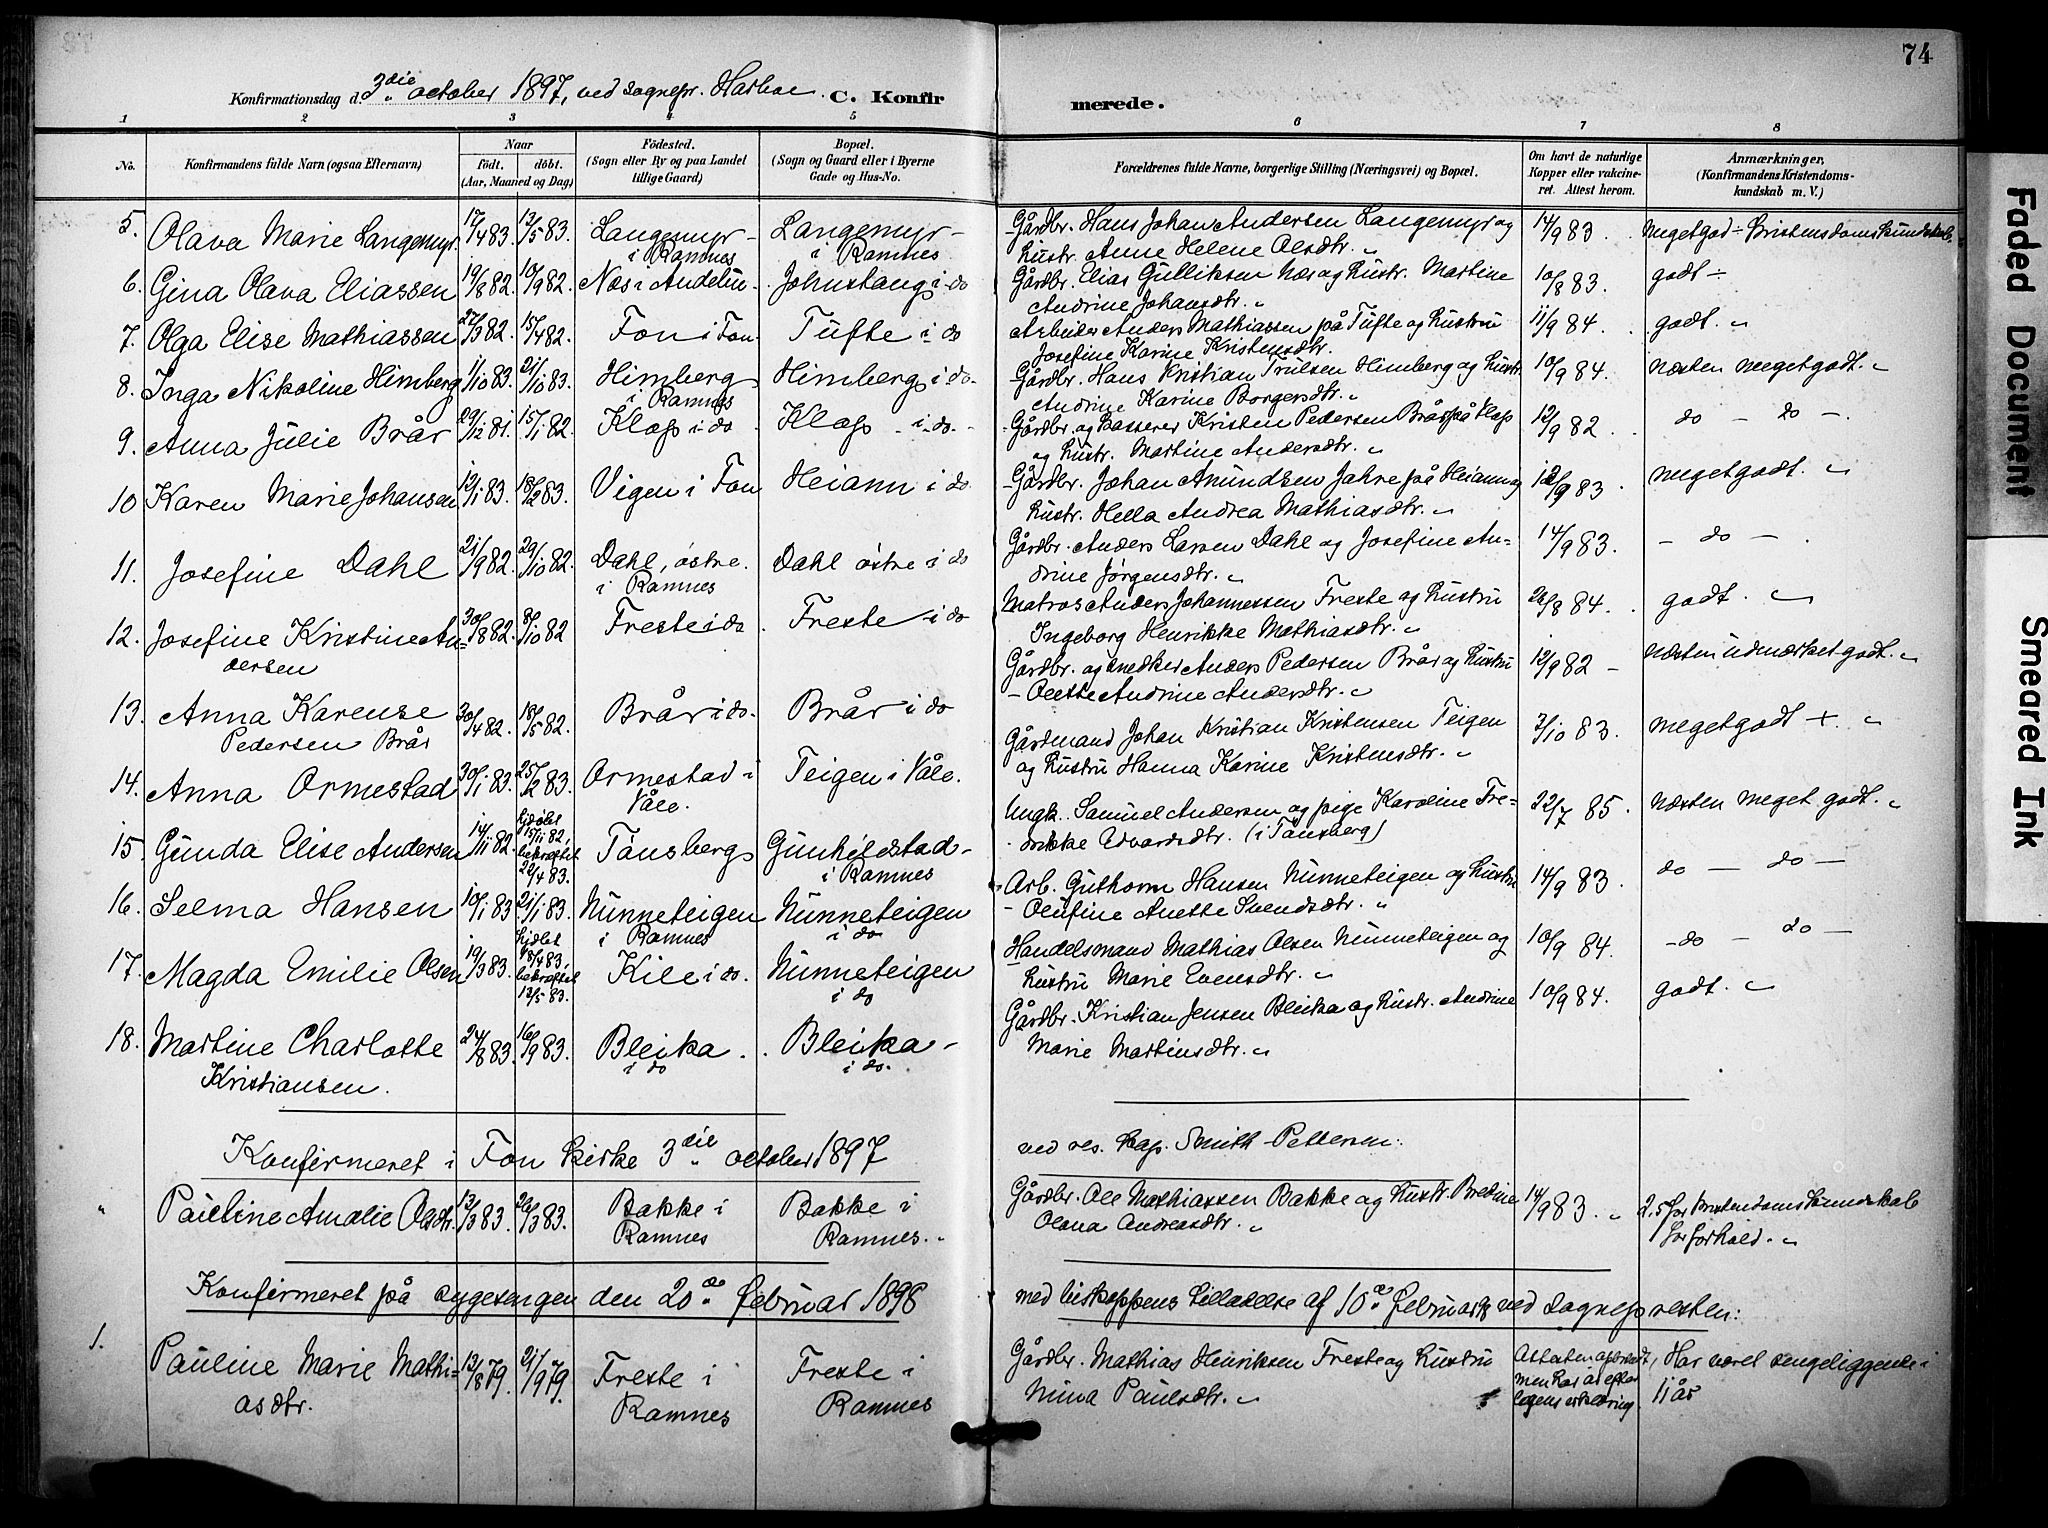 74
Konfirmationsdag d. 3die october 1897, ved sognepr. C. Konfirmerede.
1 2 3 4 5 6 7 8
No. Konfirmandens fulde Navn (ogsaa Efternavn) Naar født. døbt. (Aar, Maaned og Dag) Födested. (Sogn eller By og paa Landet tillige Gaard) Bopæl. (Sogn og Gaard eller i Byerne Gade og Hus-No. Forældrenes fulde Navne, borgerlige Stilling (Næringsvei) og Bopæl. Om havt de naturlige Kopper eller vaccineret. Attest herom. Anmærkninger, (Konfirmandens Kristendomskundskab m. V.)
5. Olava Marie Langemyr. 17/4 83. 13/5 83. Langemyr i Ramnes Langemyr i Ramnes Gårdbr. Hans Johan Andersen Langemyr og
hustr. Anne Helene Olsdtr. 14/9 83. Megetgod Kristendomskundskab.
6. Gina Olava Eliassen 19/8 82. 10/9 82. Næs i Andebu. Johnstang i do Gårdbr. Elias Gulliksen Næs og hustr. Martine
Andrine Johansdtr. 10/8 83. godt
7. Olga Elise Mathiassen 27/3 82. 15/4 82. Fon i Fon. Tufte i do Arbeider Anders Mathiassen på Tufte og hustru
Josefine Karine Kristensdtr. 11/9 84. godt.
8. Inga Nikoline Himberg 1/10 83. 21/10 83. Himberg i Ramnes Himberg i do. Gårdbr. Hans Kristian Trulsen Himberg og hustr.
Andrine Karine Borgersdtr. 10/9 84. næsten megetgodt.
9. Anna Julie Brår 29/12 81. 15/1 82. Klop i do Klop i do. Gårdbr. og Kristen Pedersen Brår på Klop
og hustr. Martine Andersdtr. 12/9 82 do - do -.
10 Karen Marie Johansen 12/1 83. 18/2 83. Vigen i Fon Heiann i do Gårdbr. Johan Amundsen Jahre på Heiann og
hustr. Hella Andrea Mathiasdtr. 12/9 83. megetgodt.
11. Josefine Dahl 21/9 82. 29/10 82. Dahl, østre. i Ramnes Dahl østre i do Gårdbr. Anders Larsen Dahl og Josefine An=
drine Jørgensdtr. 14/9 83. - do -.
12. Josefine Kristine An=
dersen 30/8 82. 8/10 82 Freste i do. Freste i do Matros Anders Johannessen Freste og hustru
Ingeborg Henrikke Mathiasdtr. 26/8 84. godt.
13. Anna Karense
Pedersen Brår 30/4 82. 18/5 82. Brår i do. Brår i do Gårdbr. og snedker Anders Pedersen Brår og hustru
Olette Andrine Andersdtr. 12/9 82 - næsten udmærket godt.
14. Anna Ormestad 30/1 83. 25/2 83. Ormestad i Våle. Teigen i Våle. Gårdmand Johan Kristian Kristensen Teigen
og hustru Hanna Karine Kristensdtr. 3/10 83. megetgodt +.
15. Gunda Elise Andersen 14/11 82. hjdøbt 15/11 82, bekræftet 22/4 83. Tønsberg Gunhildstad i Ramnes Ungk. Samuel Andersen og pige Karoline Fre=
drikke Edvardsdtr. (i Tønsberg) 22/7 85. næsten meget godt.
16. Selma Hansen 10/1 83. 21/1 83. Nunneteigen i Ramnes Nunneteigen i do Arb. Guthorm Hansen Nunneteigen og hustru
Olufine Anette Svendsdtr. 14/9 83. do - do -
17. Magda Emilie Olsen 19/3 83. hjdøbt 18/4 83, bekræftet 13/5 83. Kile i do. Nunneteigen i do Handelsmand Mathias Olsen Nunneteigen og
hustru Marie Evensdtr. 10/9 84. - do - do -
18. Martine Charlotte
Kristiansen. 24/8 83. 16/9 83. Bleika. i do Bleika i do. Gårdbr. Kristian Jensen Bleika og hustr. Andrine
Marie Martinsdtr. 10/9 84. godt.
Konfirmeret i Fon kirke 3die october 1897 ved res. kap. Smith-Petersen:
" Pauline Amalie Olsdtr. 13/3 83. 26/3 83. Bakke i Ramnes Bakke i Ramnes. Gårdbr. Ole Mathiassen Bakke og hustr. Bredine
Olava Andreasdtr. 14/9 83. 2,5 for Kristendomskundskab
1 for forhold.
Konfirmeret på sygesengen den 20de februar 1898 med biskoppens tilladelse af 10de februar ved sognepresten:
1. Pauline Marie Mathi=
asdtr. 13/8 79. 21/9 79. Freste i Ramnes Freste i Ramnes Gårdbr. Mathias Henriksen Freste og hustru
Nina Paulsdtr. Attesten men har ar efter lægens erklæring. Har været sengeliggende i
11 år
Faded Document
Smeared Ink